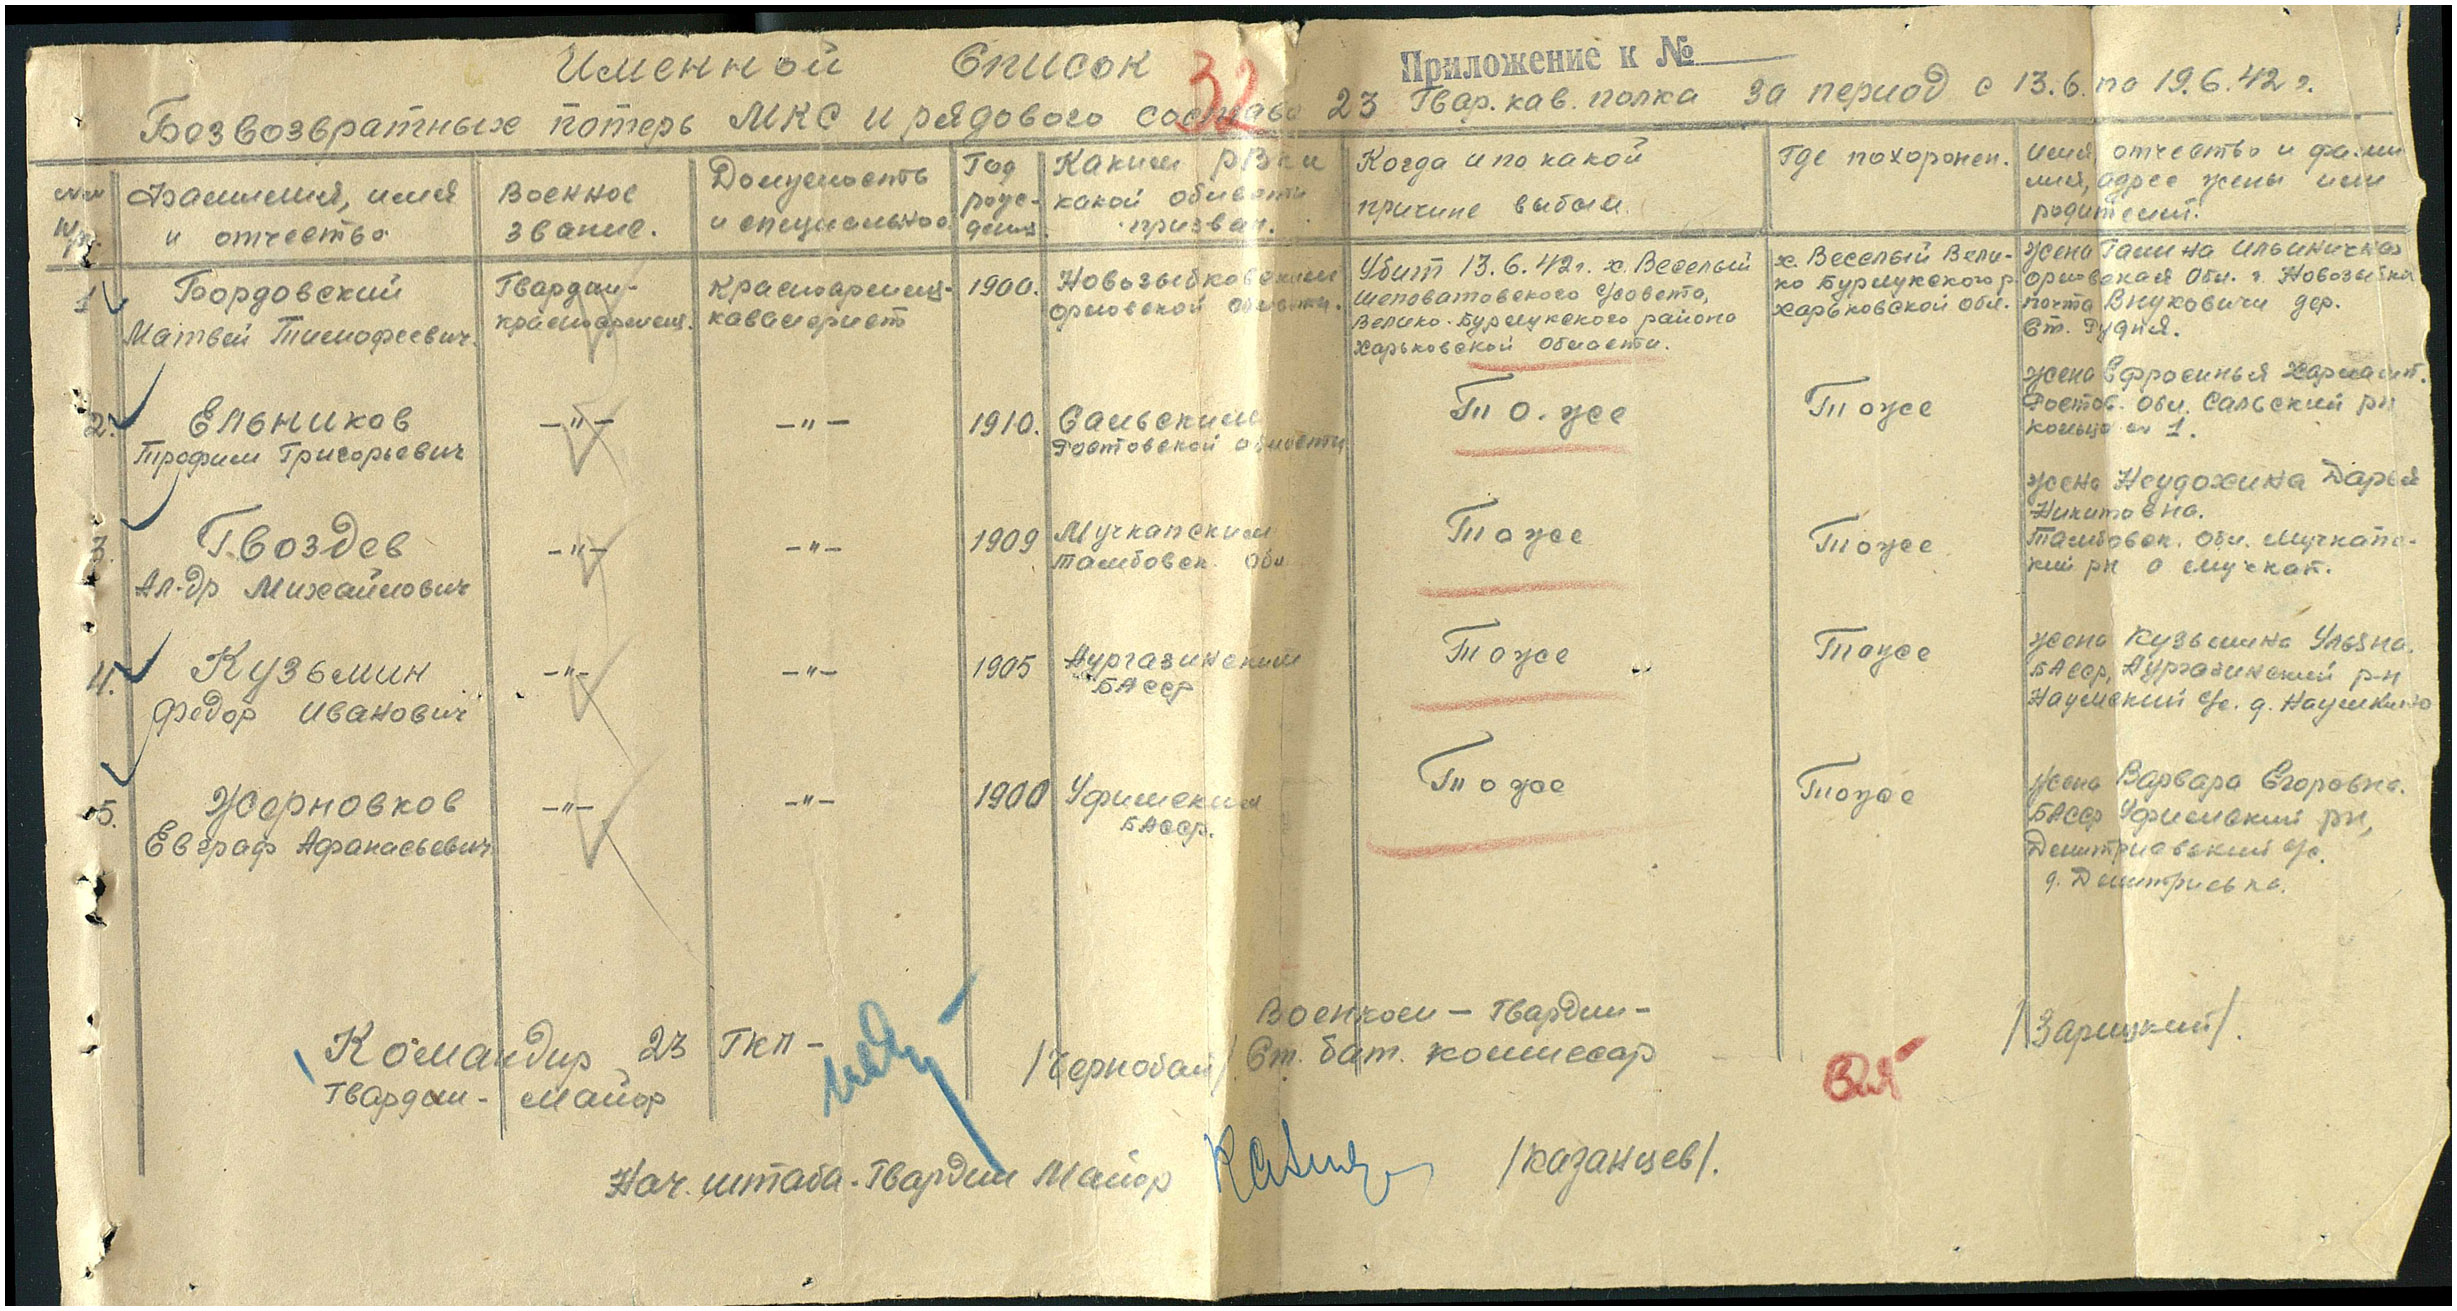 Именной Список
Приложение к №
32
Безвозвратных потерь МКС и рядового состава 23 Гвар. кав. полка за период с 13.6. по 19.6.42 г.
№№ п/п.
Фамилия, имя и отчество
Военное звание.
Должность и специальнос.
Год рождения.
Каким РВК и какой области призван.
Когда и по какой причине выбыл.
Где похоронен.
Имя, отчество и фамилия, адрес жены или родителей.
1.
Бордовский
Матвей Тимофеевич.
Гвардии-
красноармеец.
Красноармеец-
кавалерист
1900.
Новозыбковским
орловской области.
Убит 13.6.42 г. х. Веселый
Шеповатовского с/совета,
Велико-Бурлукского района
Харьковской области.
х. Веселый Вели-
ко Бурлукского р.
Харьковской обл.
Жена Галина Ильинична
орловская Обл. г. Новозыбка
почта Внуковичи дер.
Ст. Рудня.
2.
Ельников
Трофим Григорьевич
-"-
-"-
1910.
Сальским
Ростовской области
То. же
Тоже
жена Ефросинья
Ростов. обл. Сальский рн
1.
3.
Гвоздев
Ал-др Михайлович
-"-
-"-
1909
Мучкапским
Тамбовск. Обл
Тоже
Тоже
жена Неудохина Дарья
Никитовна.
Тамбовск. Обл. Мучкапс-
кий рн с мучкап.
4.
Кузьмин
Федор Иванович
-"-
-"-
1905
Аургазинским
БАССР
Тоже
Тоже
жена Кузьмина Ульяна.
БАССР, Аургазинский р-н
Наумский с/с. д. Наумкино
5.
Жерновков
Евграф Афанасьевич
-"-
-"-
1900
Уфимским
БАССР.
Тоже
Тоже
жена Варвара Егоровна.
БАССР Уфимский рн,
Дмитриевский с/с.
д. Дмитриевка.
Командир 23 ГКП -
Гвардии - майор
/Чернобай/
Военком - Гвардии -
Ст. бат. комиссар
/Зарицкий/.
Нач. штаба - Гвардии Майор
/Казанцев/.